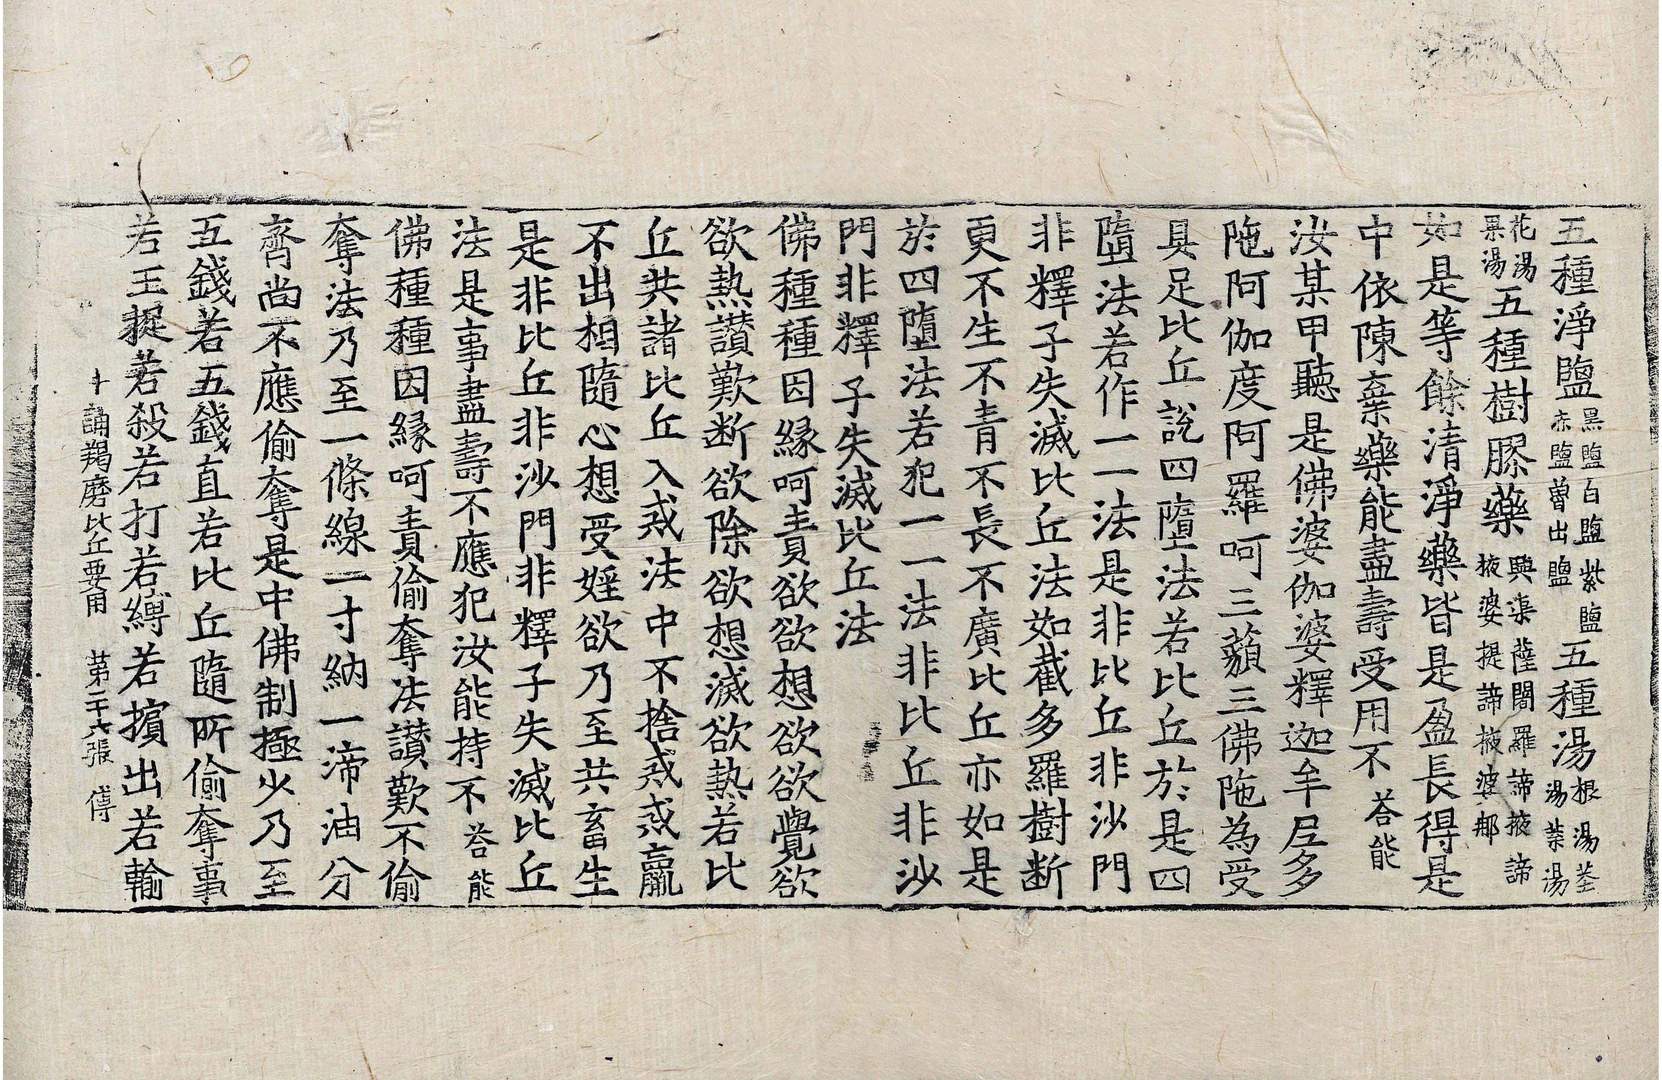 五種淨鹽黑鹽白鹽紫鹽赤鹽曽出鹽五種湯根湯莖湯葉湯
花湯菓湯五種樹膠藥興渠薩闍羅諦掖諦掖婆提諦掖婆那
如是等餘清淨藥皆是盈長得是
中依陳棄藥能盡壽受用不荅能
汝某甲聽是佛婆伽婆釋迦牟尼多
陁阿伽度阿羅呵三藐三佛陁為受
具足比丘說四墮法若比丘於是四
墮法若作一一法是非比丘非沙門
非釋子失滅比丘法如截多羅樹斷
更不生不青不長不廣比丘亦如是
於四墮法若犯一一法非比丘非沙
門非釋子失滅比丘法
佛種種因緣呵責欲欲想欲欲覺欲
欲熱讃歎斷欲除欲欲想滅欲熱若比
丘共諸比丘入戒法中不捨戒戒羸
不出相隨心想受婬欲乃至共畜生
是非比丘非沙門非釋子失滅比丘
法是事盡壽不應犯汝能持不荅能
佛種種因緣呵責偷奪法讃歎不偷
奪法乃至一條線一寸納一渧油分
齊尚不應偷奪是中佛制極少乃至
五錢若五錢直若比丘隨所偷奪事
若王捉若殺若打若縛若擯出若輸
十誦羯磨比丘要用 第二十六張 傅